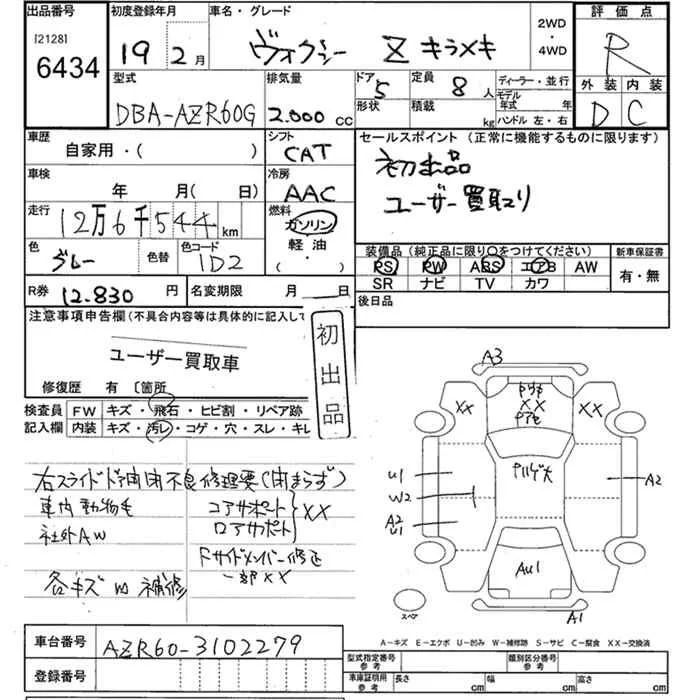 出品番号 初度登録年月 車名・グレード 2WD・4WD 評価点
[2128] 6434 19 2月 ヴォクシー Z キラメキ R
型式 排気量 ドア 5 定員 8人 ディーラー・並行 外装 内装
DBA-AZR60G 2.000 CC 形状 積載 kg モデル年式 年 ハンドル 左・右 D C
車歴 シフト セールスポイント (正常に機能するものに限ります)
自家用・( ) CAT 初出品
車検 冷房 ユーザー買取り
年 月( 日) AAC
走行 燃料
12万6千544km ガソリン
色 色替 色コード 軽油・ 装備品(純正品に限り〇をつけてください) 新車保証書
グレー 1D2 ( ) PS PW ABS エアB AW 有・無
SR ナビ TV カワ
R券 12.830 円 名変期限 月 日 後日品
注意事項申告欄(不具合内容等は具体的に記入して
ユーザー買取車
初出品
修復歴 有 〔箇所
検査員 FW キズ・飛石・ヒビ割・リペア跡
記入欄 内装 キズ・汚レ・コゲ・穴・スレ・キレ
右スライドドア開閉不良修理要(閉まらず)
車内動物毛 コアサポート
社外AW ロアサポート XX
Fサイドメンバー修正
一部XX
各キズ W 補修
A3
XX XX XX
U1 A2
W2
A2
U1
AU1
スペア A1
A-キズ E-エクボ U-凹み W-補修跡 S-サビ C-腐食 XX-交換済
車台番号 AZR60-3102279
型式指定番号 参考 類別区分番号 参考
登録番号 車庫証明用 参考 長さ cm 幅 cm 高さ cm